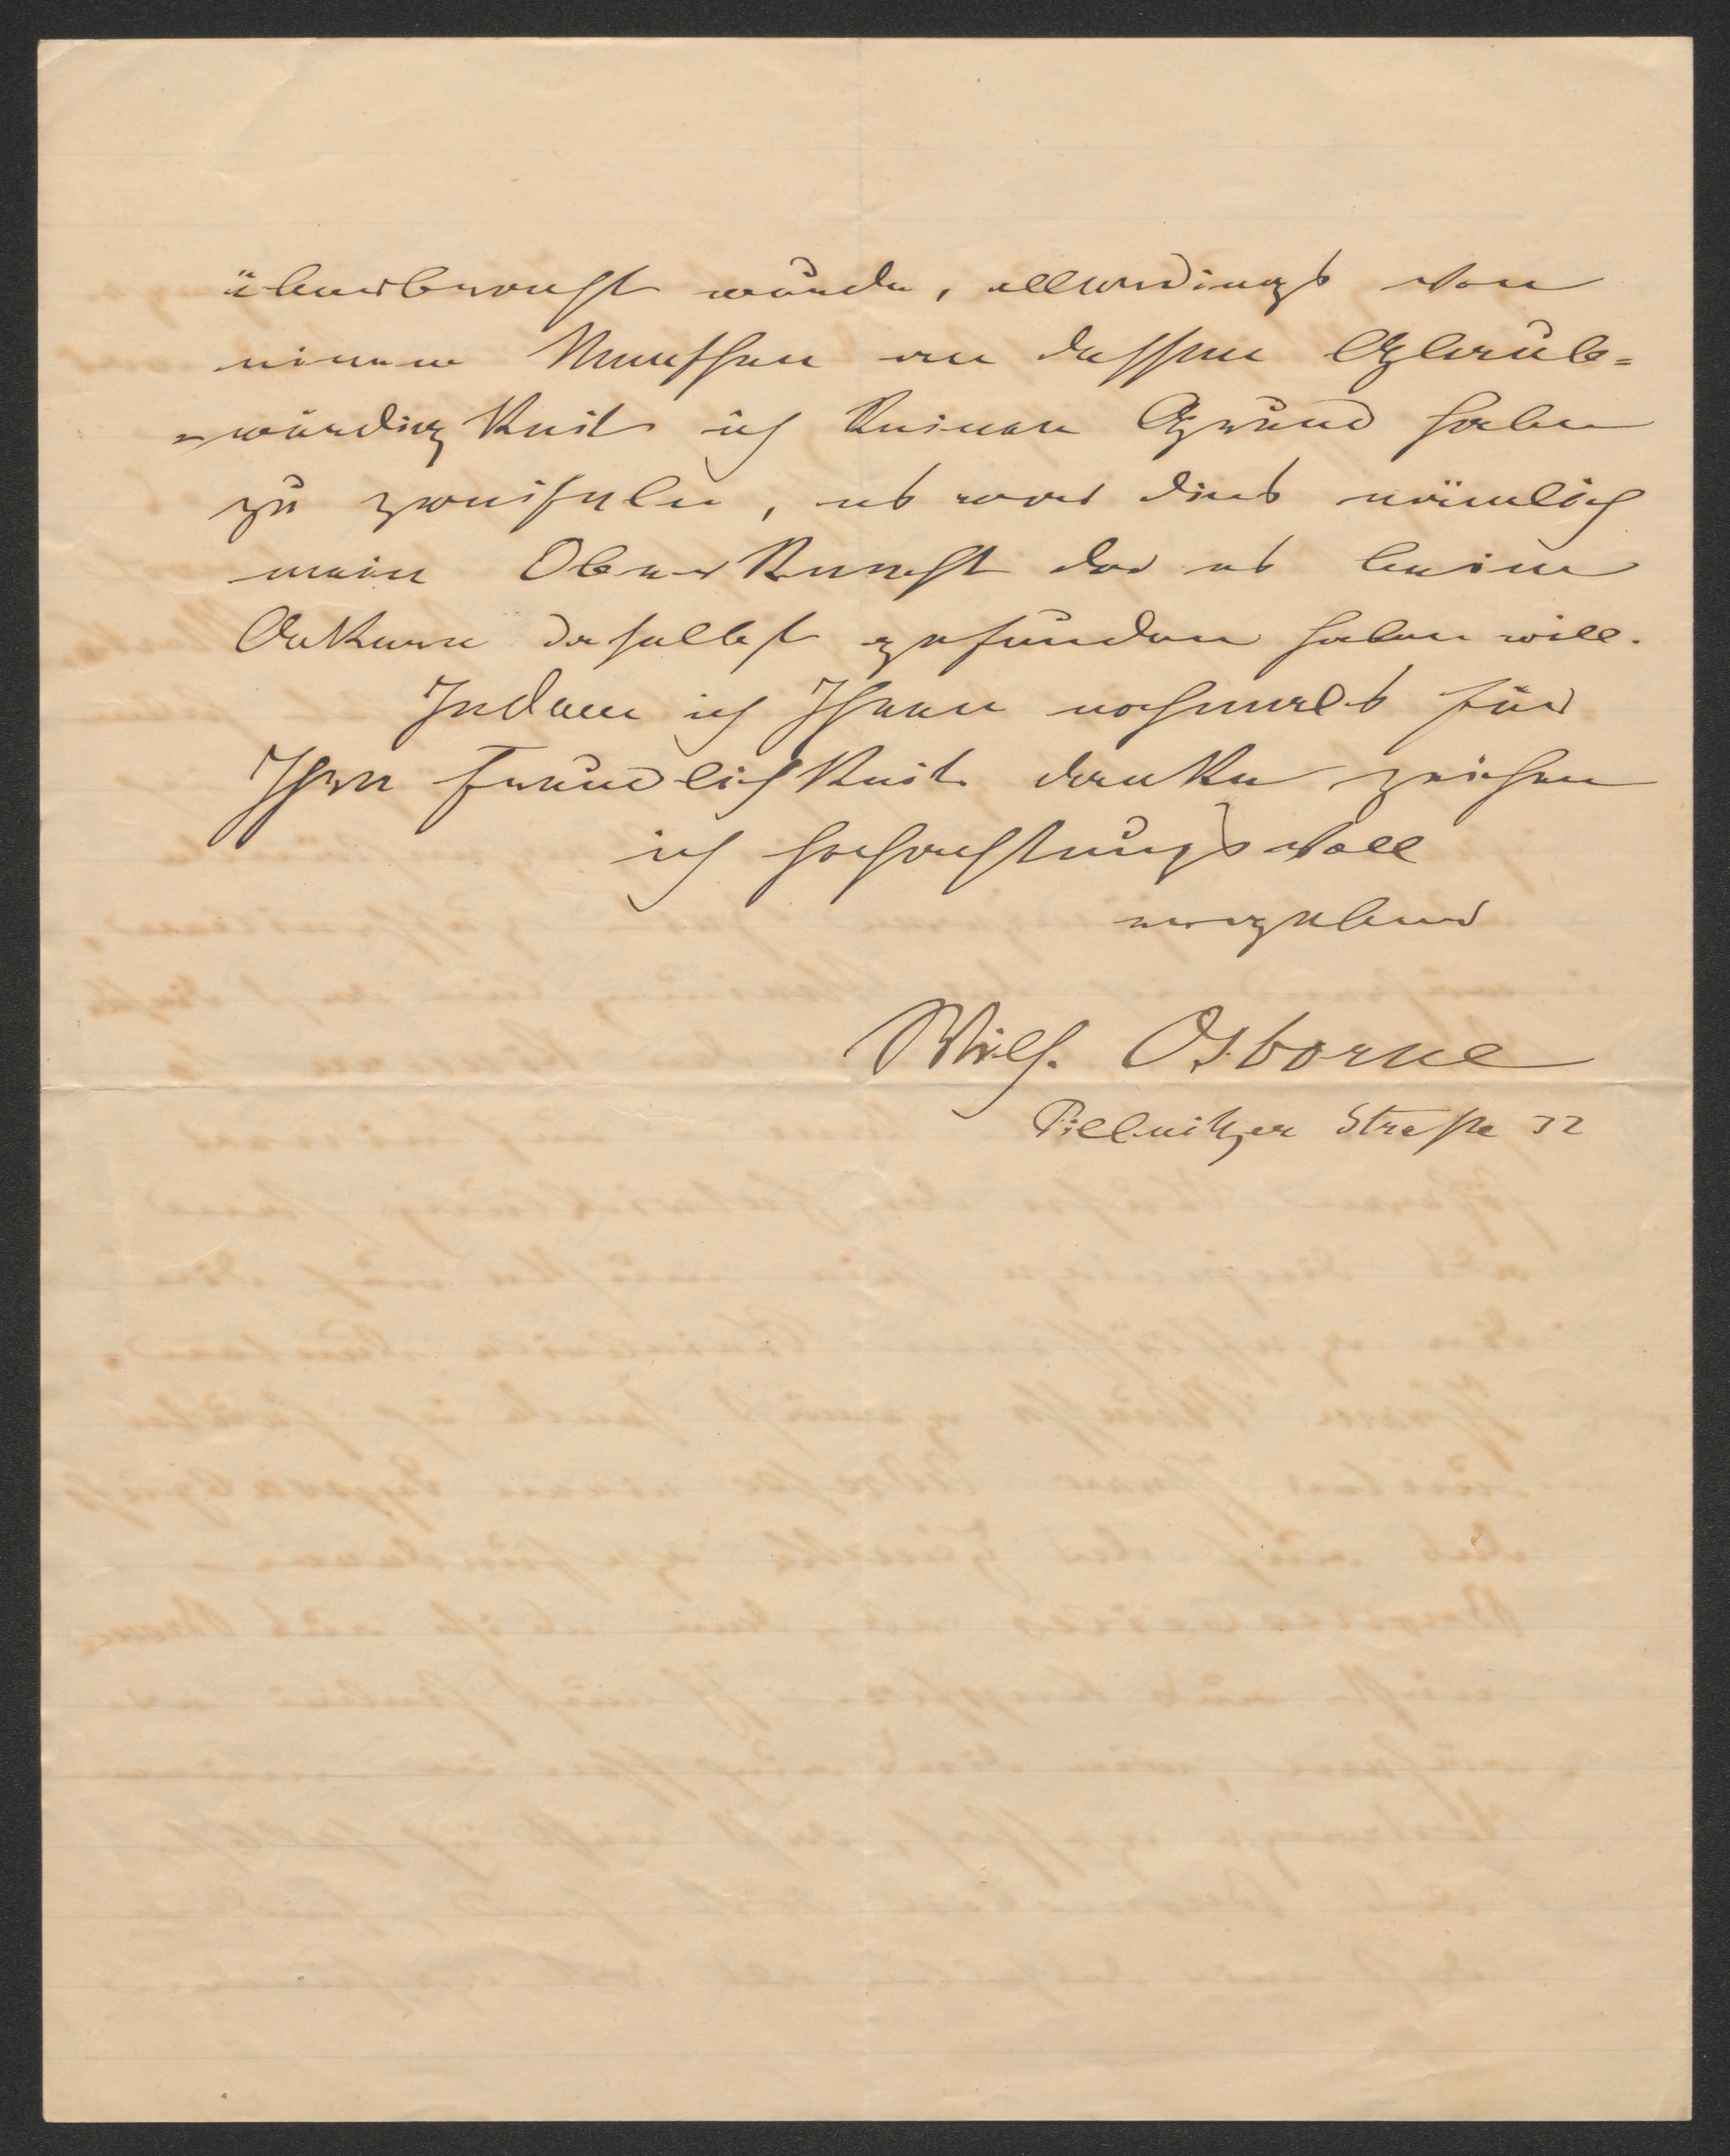 überbracht wurde, allerdings von
einem Menschen an dessen Glaub=
=würdigkeit ich keinen Grund habe
zu zweifeln, es war dies nämlich
mein Oberknecht der es beim
Ackern daselbst gefunden haben will.
Indem ich Ihnen nochmals für
Ihre Freundlichkeit danke zeichne
ich hochachtungsvoll
ergebend
Wilh. Osborne
Pillnitzer Straße 32